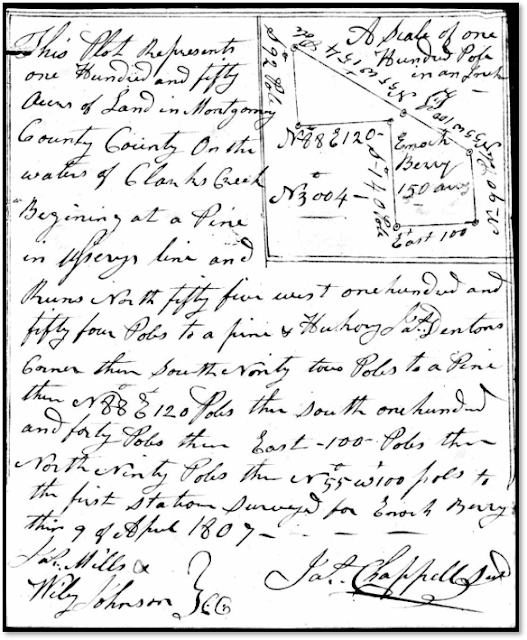 This Plot Represents
one Hundred and fifty
Acers of Land in Montgomry
County County On the
waters of Clarks Creek
Begining at a Pine
in line and
Runs North fifty five west one hundred and
fifty four Poles to a pine & Huckory Jas. Dentons
Corner then South Ninty two Poles to a Pine
then N88°E 120 Poles then South one hundred
and forty Poles then East -100- Poles then
North Ninty Poles then N55°W 100 pols to
the first station Surveyed for Enoch Berry
this 9 of Aprel 1807 -
Jas. Mills &
Wiley Johnson } CC
Jas. Chappell Surv
A Scale of one
Hundred Pole
in an Inch
S 92 Pole
N 55 W 154 Pole
N 55 W 100 Pole
N 88 E 120 -
S 140 Pole
Enoch
Berry
150 acrs
N 3004 -
N 90 Pole
East 100